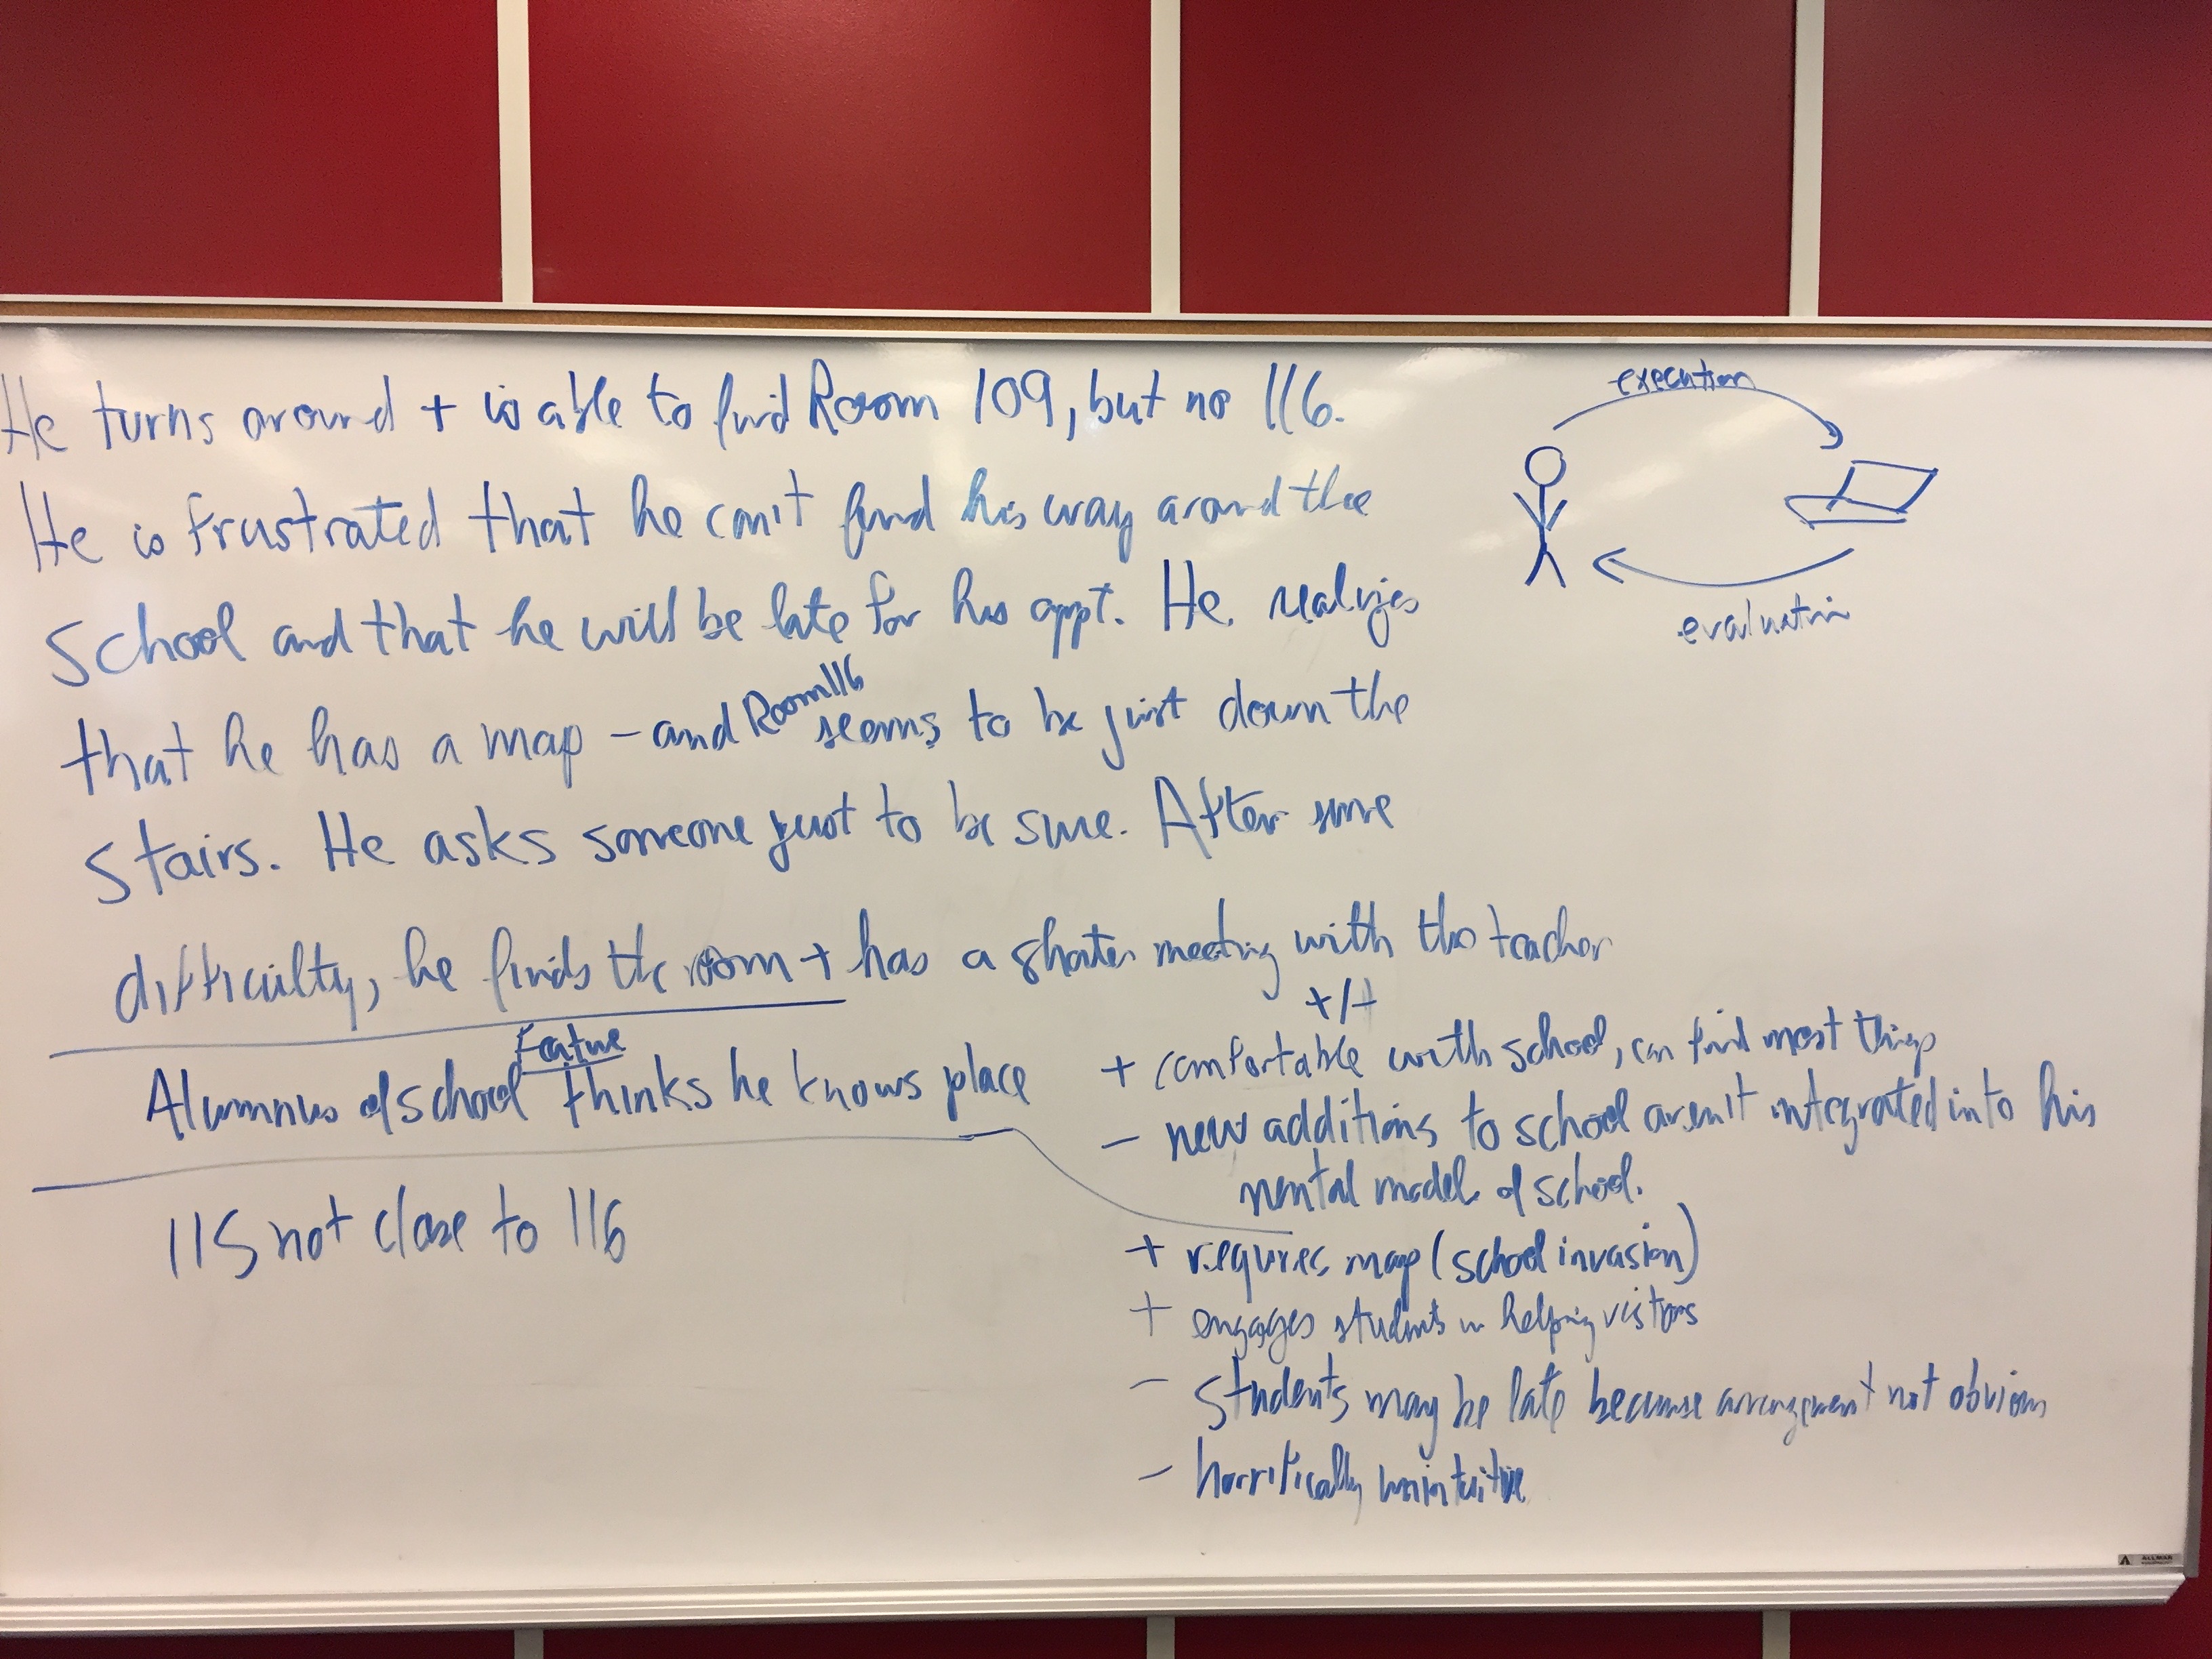 He turns around + is able to find Room 109, but no 116.
He is frustrated that he can't find his way around the
school and that he will be late for his appt. He realizes
that he has a map - and Room 116 seems to be just down the
stairs. He asks someone just to be sure. After some
difficulty, he finds the room + has a shorter meeting with the teacher
execution
evaluation
Feature
+/+
Alumnus of school thinks he knows place
+ comfortable with school, can find most things
- new additions to school aren't integrated into his
mental model of school.
115 not close to 116
+ requires map (school invasion)
+ engages students in helping visitors
- students may be late because arrangement not obvious
- horrifically unintuitive